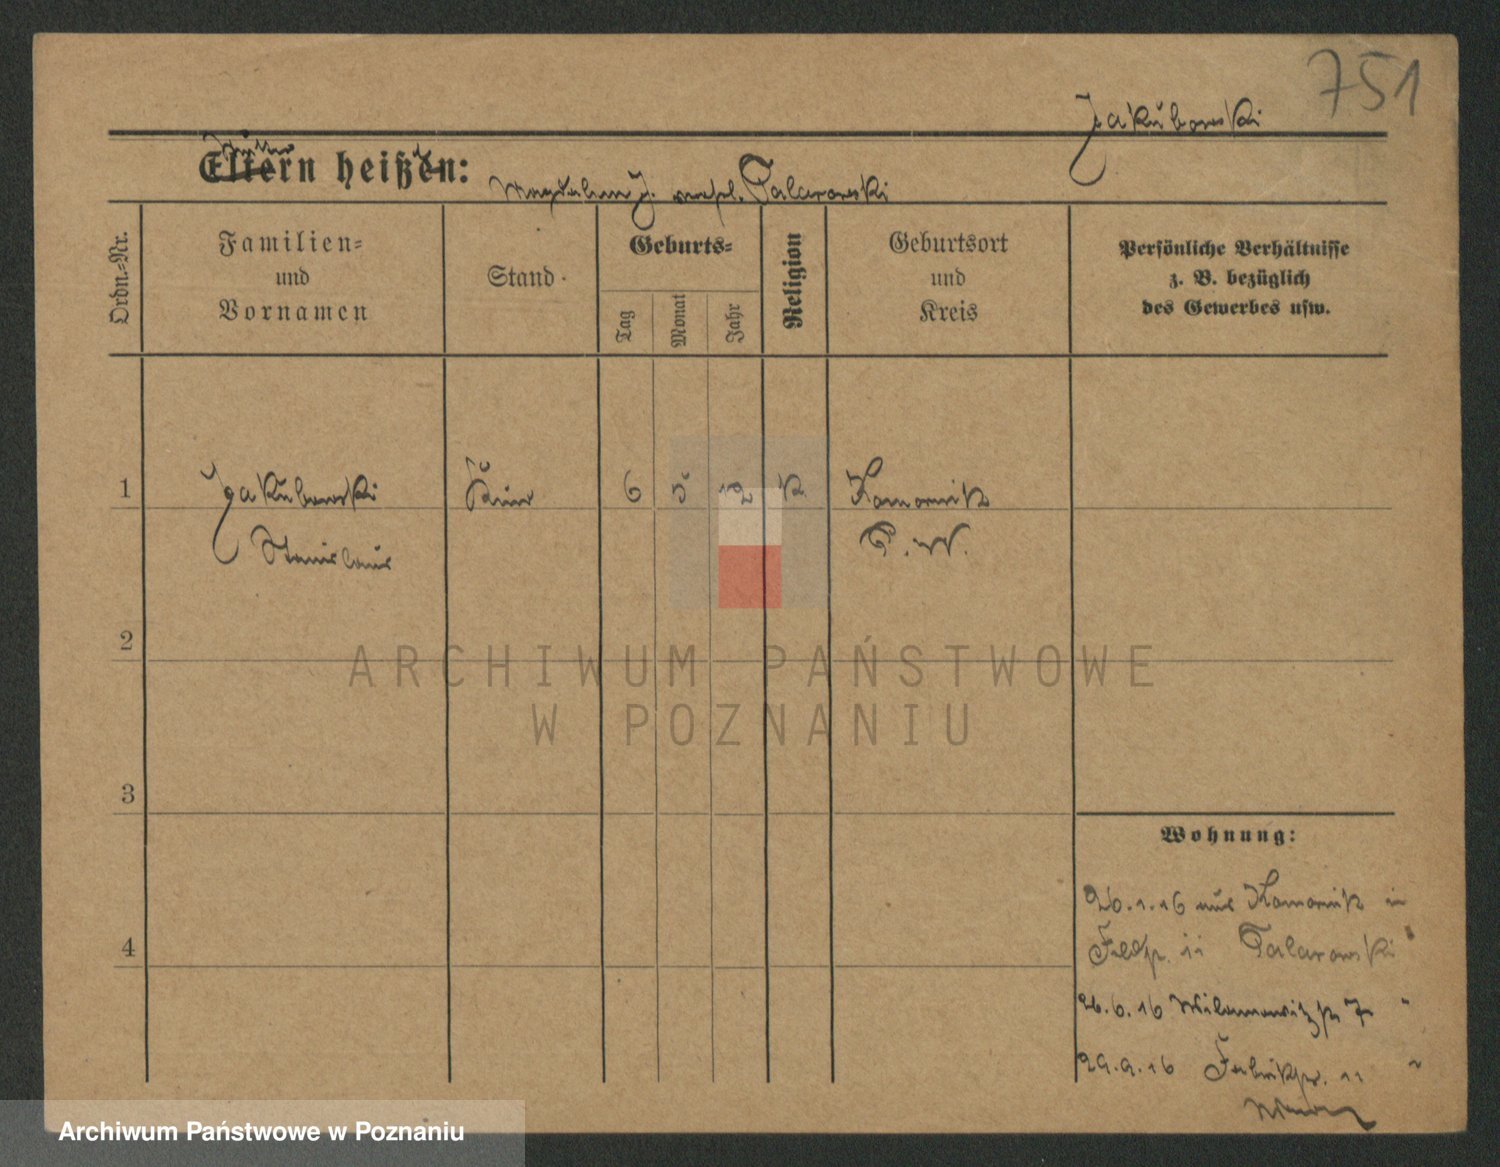 751
Jakubowski
Mutter
Eltern heißen:
Magdalena J. verehl. Talarowski
Ordn.=Nr.
Familien=
und
Vornamen
Stand
Geburts=
Tag
Monat
Jahr
Religion
Geburtsort
und
Kreis
Persönliche Verhältnisse
z. B. bezüglich
des Gewerbes usw.
1
Jakubowski
Stanislaus
6
5
12
K.
Komornik
P. W.
2
3
4
ARCHIWUM PAŃSTWOWE
W POZNANIU
Wohnung:
26.1.16 aus Komornik in
Feldstr. 11 Talarowski
26.6.16 Wilamowitzstr 7 "
29.9.16 Fabrikstr. 11 "
Archiwum Państwowe w Poznaniu